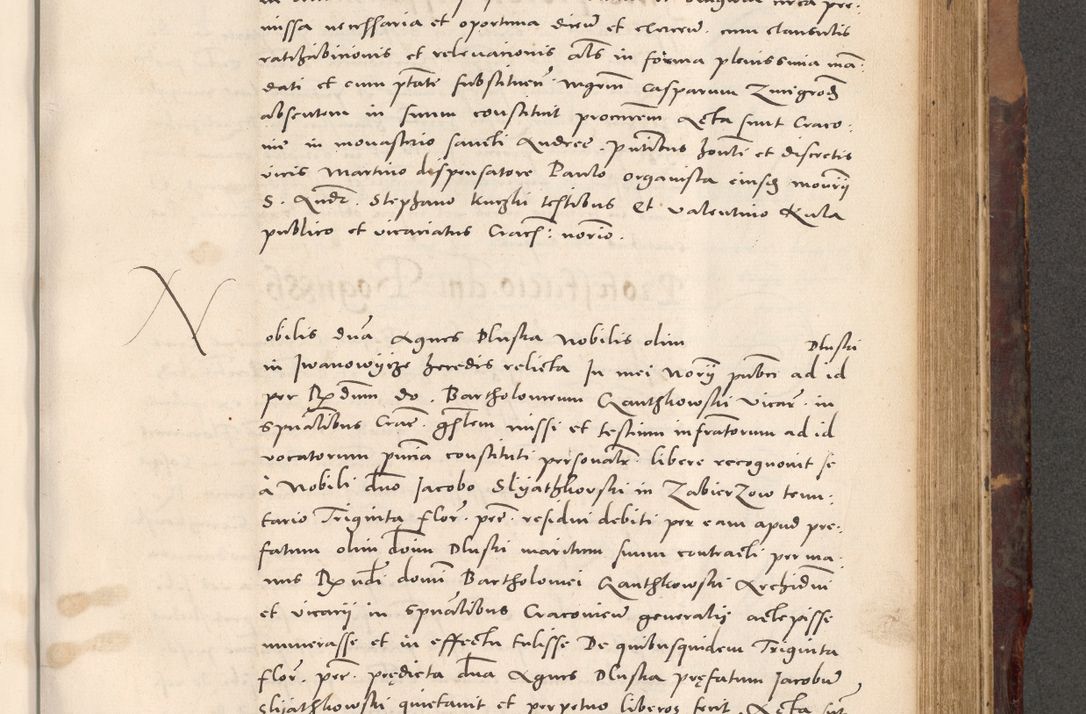 missa necessaria et oportuna dicen̄ et exercen̄. cum clausulis
ratihabitionis et relevationis ac̄ls in forma plenissima man¬
dati et cum p̄tate substituen̄ mgrm̄ Casparum Zmigrod̄
absentem in suum constituit procurem̄ Acta sunt Craco¬
vie in monasterio sancti Andree. p̄ntibus hon̄ti et discretis
viris Martino dispensatore Paulo organista eiusd̄ mon̄rij
S. Andr̄. Stephano testibus Et Valentino Rula
publico et vicariatus Crac̄. norio.
Nobilis dn̄a Agnes Dluska Nobilis olim Dluski
in Iwanowycze heredis relicta In mei Norij publici ad id
per Rx̄dum do. Bartholomeum Ganthkowski Vicar̄. in
spūalibus Crac̄. gn̄lem misse et testium infrātorum ad id
vocatorum pn̄cia constituti personalr̄. libere recognovit se
à Nobili dn̄o Jacobo Slyathkowski in Zabierzow tenu¬
tario Triginta flor̄. pec̄. residui debiti per eam apud pre¬
fatum olim dn̄m Dluski maritum suum contracti per ma¬
nus Rx̄ndi domi Bartholomei Ganthkowski Archidni
et vicarij in spūalibus Cracovien̄ generalis accepisse
numerasse et in effectu tulisse De quibusquidem Triginta
flor̄. pec̄. prędicta dn̄a Agnes Dluska pręfatum Jacobum̄
Slyathkowski quietavit et perpetuo liberos fecit. Acta sūt